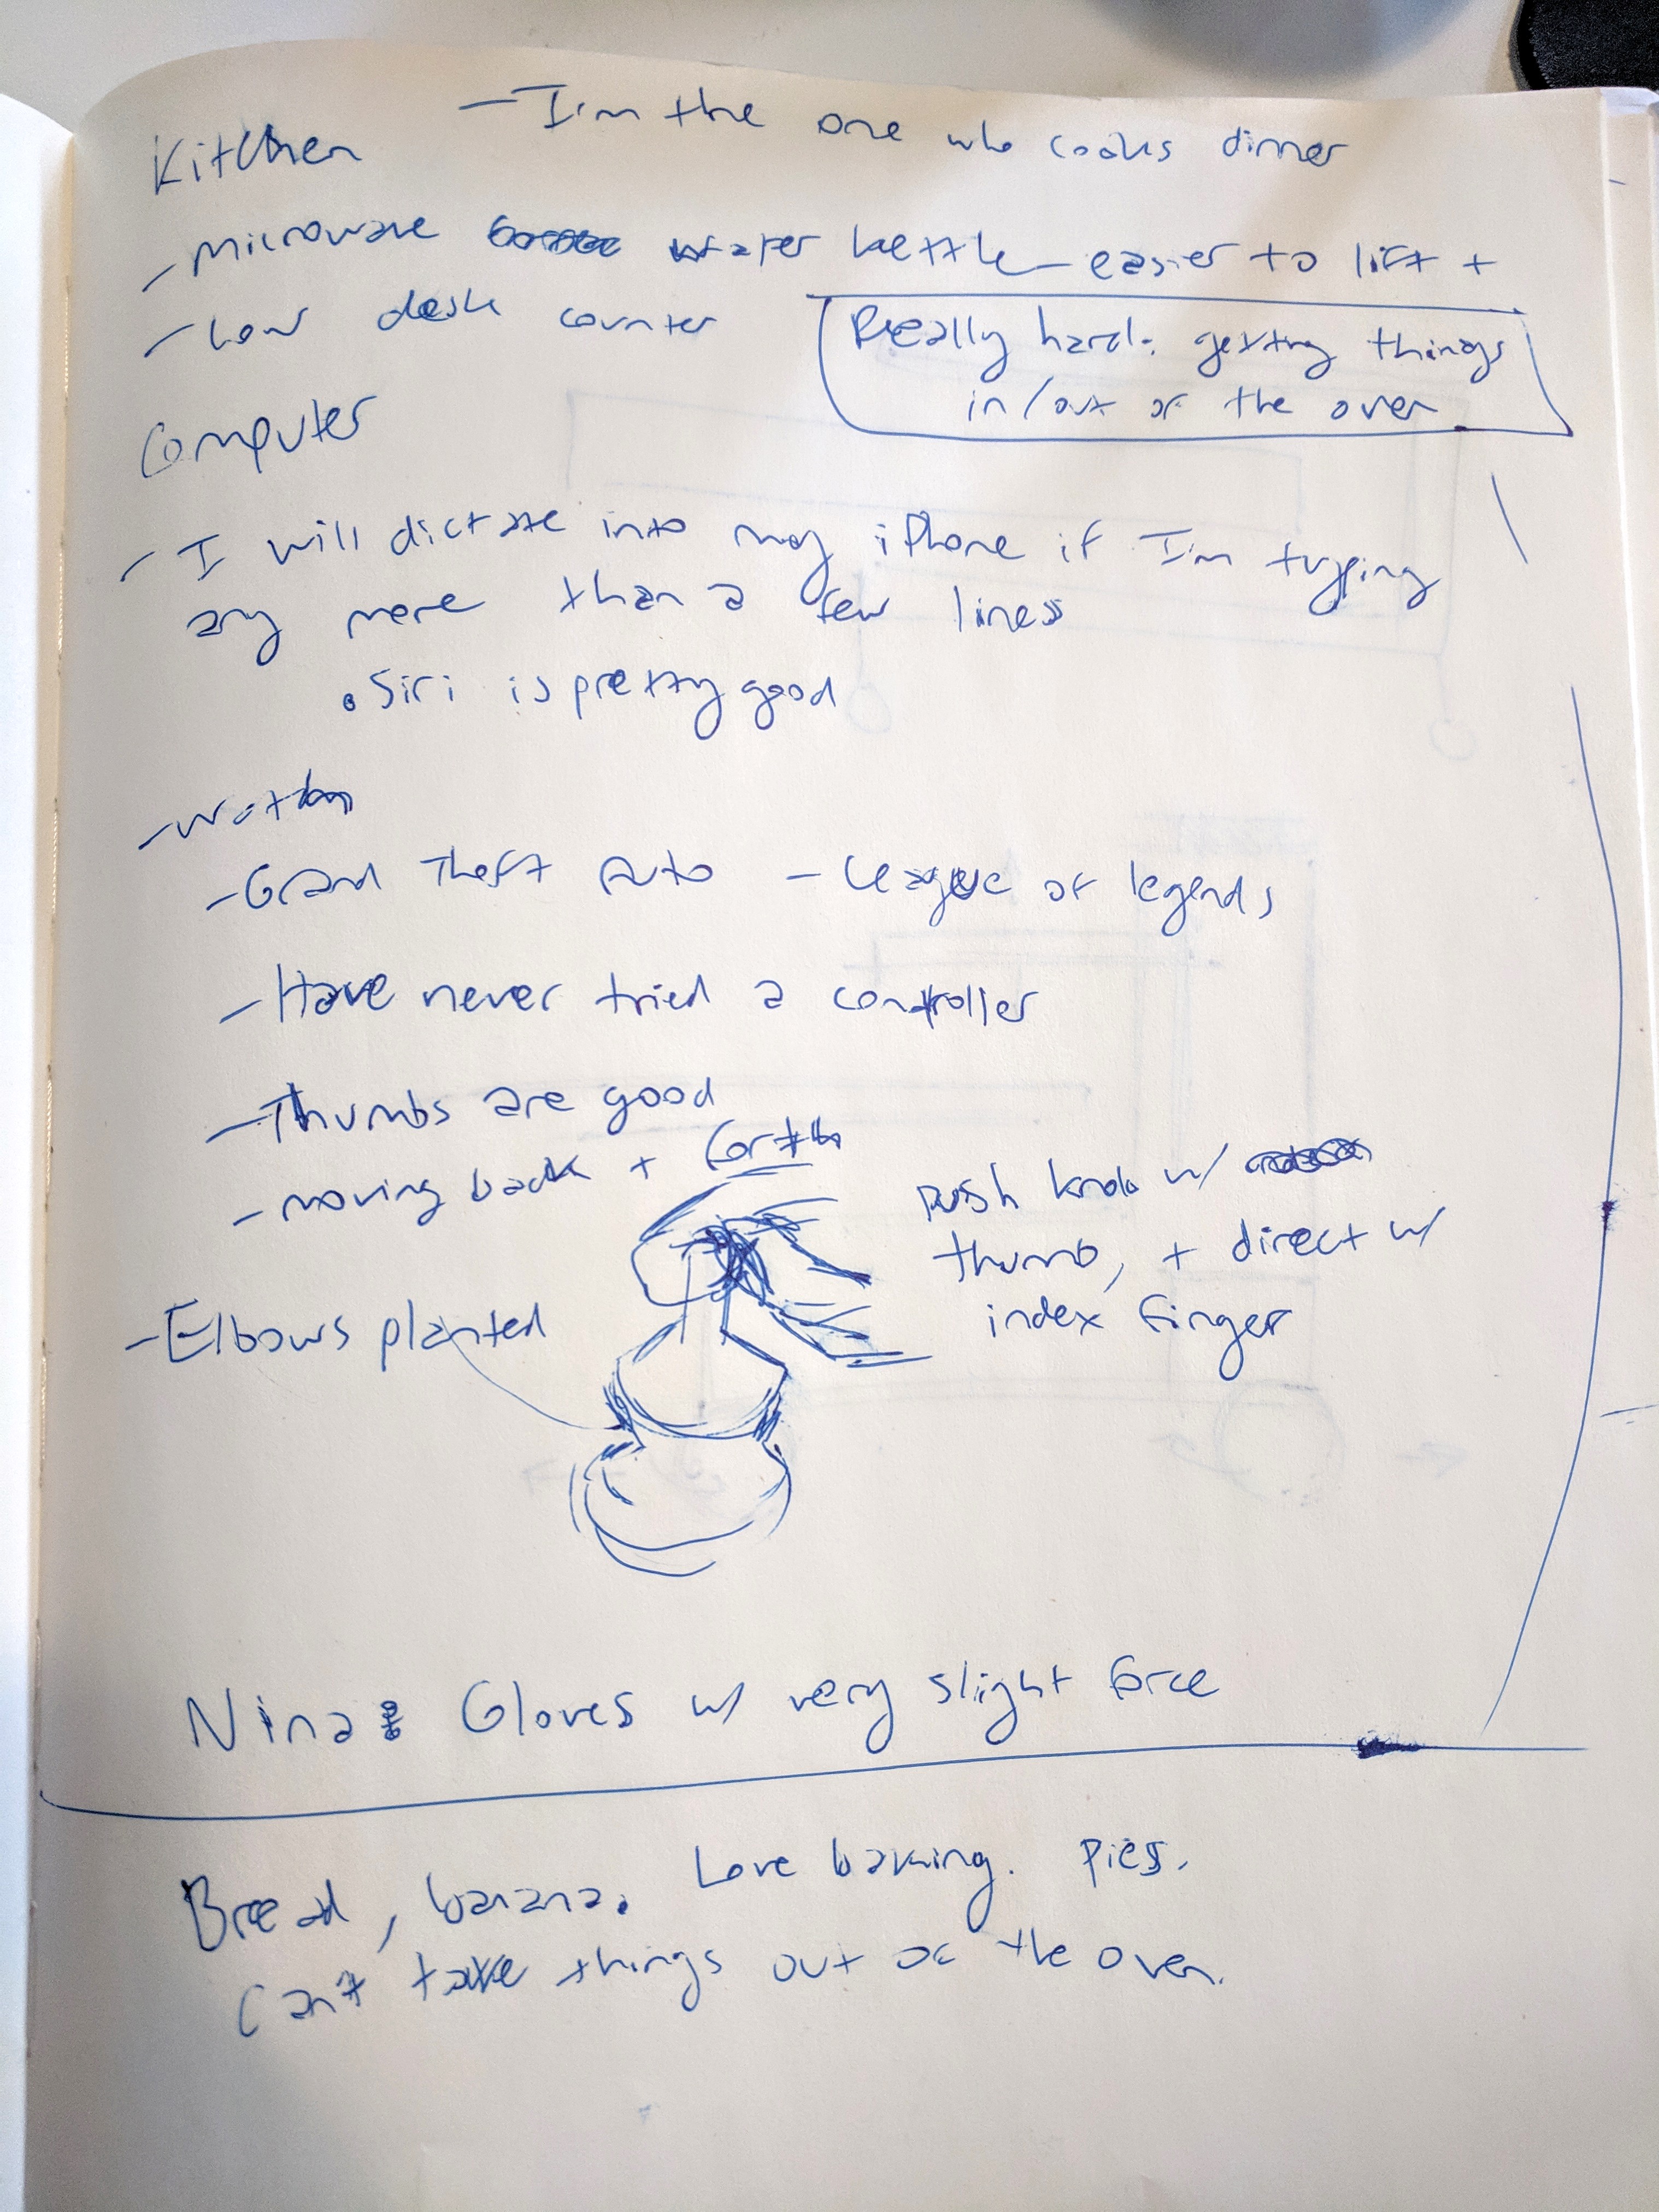 Kitchen - I'm the one who cooks dinner
- Microwave water kettle - easier to lift +
- Low desk counter
Really hard: getting things
in/out of the oven
Computer
- I will dictate into my iPhone if I'm typing
any more than a few lines
• Siri is pretty good
- Grand Theft Auto - League of legends
- Have never tried a controller
- Thumbs are good
- moving back + forth
push knob w/
thumb, + direct w/
index finger
- Elbows planted
Nina: Gloves w/ very slight force
Bread, banana. Love baking. Pies.
Can't take things out of the oven.